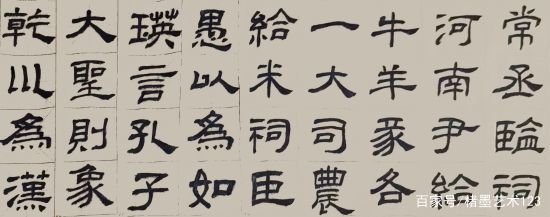 常丞監祠
河南尹給
牛羊豕各
一大司農
給米祠臣
愚以爲如
瑛言孔子
大聖則象
乾川爲漢
百家号/楮墨艺术123